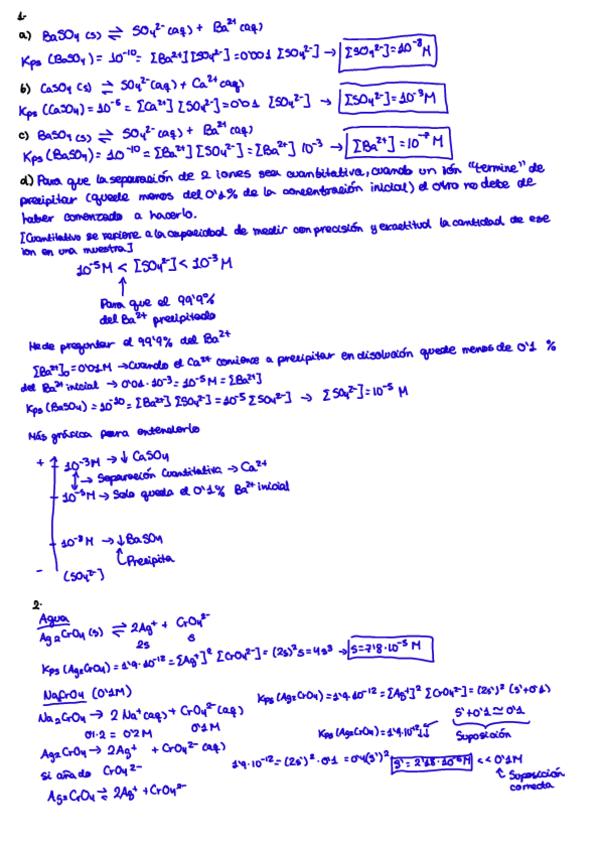 1-
a) BaSO4 (s) ⇌ SO4²⁻ (aq) + Ba²⁺ (aq)
Kps (BaSO4) = 10⁻¹⁰ = [Ba²⁺][SO4²⁻] = 0'001 [SO4²⁻] → [SO4²⁻] = 10⁻⁸ M
b) CaSO4 (s) ⇌ SO4²⁻ (aq) + Ca²⁺ (aq)
Kps (CaSO4) = 10⁻⁵ = [Ca²⁺] [SO4²⁻] = 0'01 [SO4²⁻] → [SO4²⁻] = 10⁻³ M
c) BaSO4 (s) ⇌ SO4²⁻ (aq) + Ba²⁺ (aq)
Kps (BaSO4) = 10⁻¹⁰ = [Ba²⁺] [SO4²⁻] = [Ba²⁺] 10⁻³ → [Ba²⁺] = 10⁻⁷ M
d) Para que la separación de 2 iones sea cuantitativa, cuando un ión "termine" de
precipitar (quede menos del 0'1% de la concentración inicial) el otro no debe de
haber comenzado a hacerlo.
[Cuantitativo se refiere a la capacidad de medir con precisión y exactitud la cantidad de ese
ion en una muestra]
10⁻⁵ M < [SO4²⁻] < 10⁻³ M
↑
Para que el 99'9%
del Ba²⁺ precipitado
Ha de preguntar el 99'9% del Ba²⁺
[Ba²⁺]₀ = 0'01M → Cuando el Ca²⁺ comience a precipitar en disolución quede menos de 0'1 %
del Ba²⁺ inicial → 0'01 · 10⁻³ = 10⁻⁵ M = [Ba²⁺]
Kps (BaSO4) = 10⁻¹⁰ = [Ba²⁺] [SO4²⁻] = 10⁻⁵ [SO4²⁻] → [SO4²⁻] = 10⁻⁵ M
Más gráfica para entenderlo
+ 10⁻³ M → ↓ CaSO4
→ Separación Cuantitativa → Ca²⁺
10⁻⁵ M → Solo queda el 0'1% Ba²⁺ inicial
10⁻⁸ M → ↓ BaSO4
Precipita
- (SO4²⁻)
2-
Agua
Ag2CrO4 (s) ⇌ 2Ag⁺ + CrO4²⁻
2s s
Kps (Ag2CrO4) = 1'9 · 10⁻¹² = [Ag⁺]² [CrO4²⁻] = (2s)² s = 4s³ → s = 7'8 · 10⁻⁵ M
NaCrO4 (0'1M)
Kps (Ag2CrO4) = 1'9 · 10⁻¹² = [Ag⁺]² [CrO4²⁻] = (2s')² (s' + 0'1)
Na2CrO4 → 2 Na⁺ (aq) + CrO4²⁻ (aq)
s' + 0'1 ≃ 0'1
0'1 · 2 = 0'2 M 0'1 M
Kps (Ag2CrO4) = 1'9 · 10⁻¹² ↓↓
Suposición
Ag2CrO4 → 2Ag⁺ + CrO4²⁻ (aq)
si añado CrO4²⁻
1'9 · 10⁻¹² = (2s')² · 0'1 = 0'4 (s')² s' = 2'18 · 10⁻⁶ M << 0'1M
Ag2CrO4 ⇌ 2Ag⁺ + CrO4²⁻
↑ Suposición
correcta